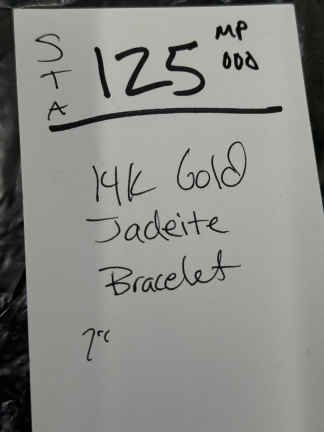 STA
125
MP
000
14K Gold
Jadeite
Bracelet